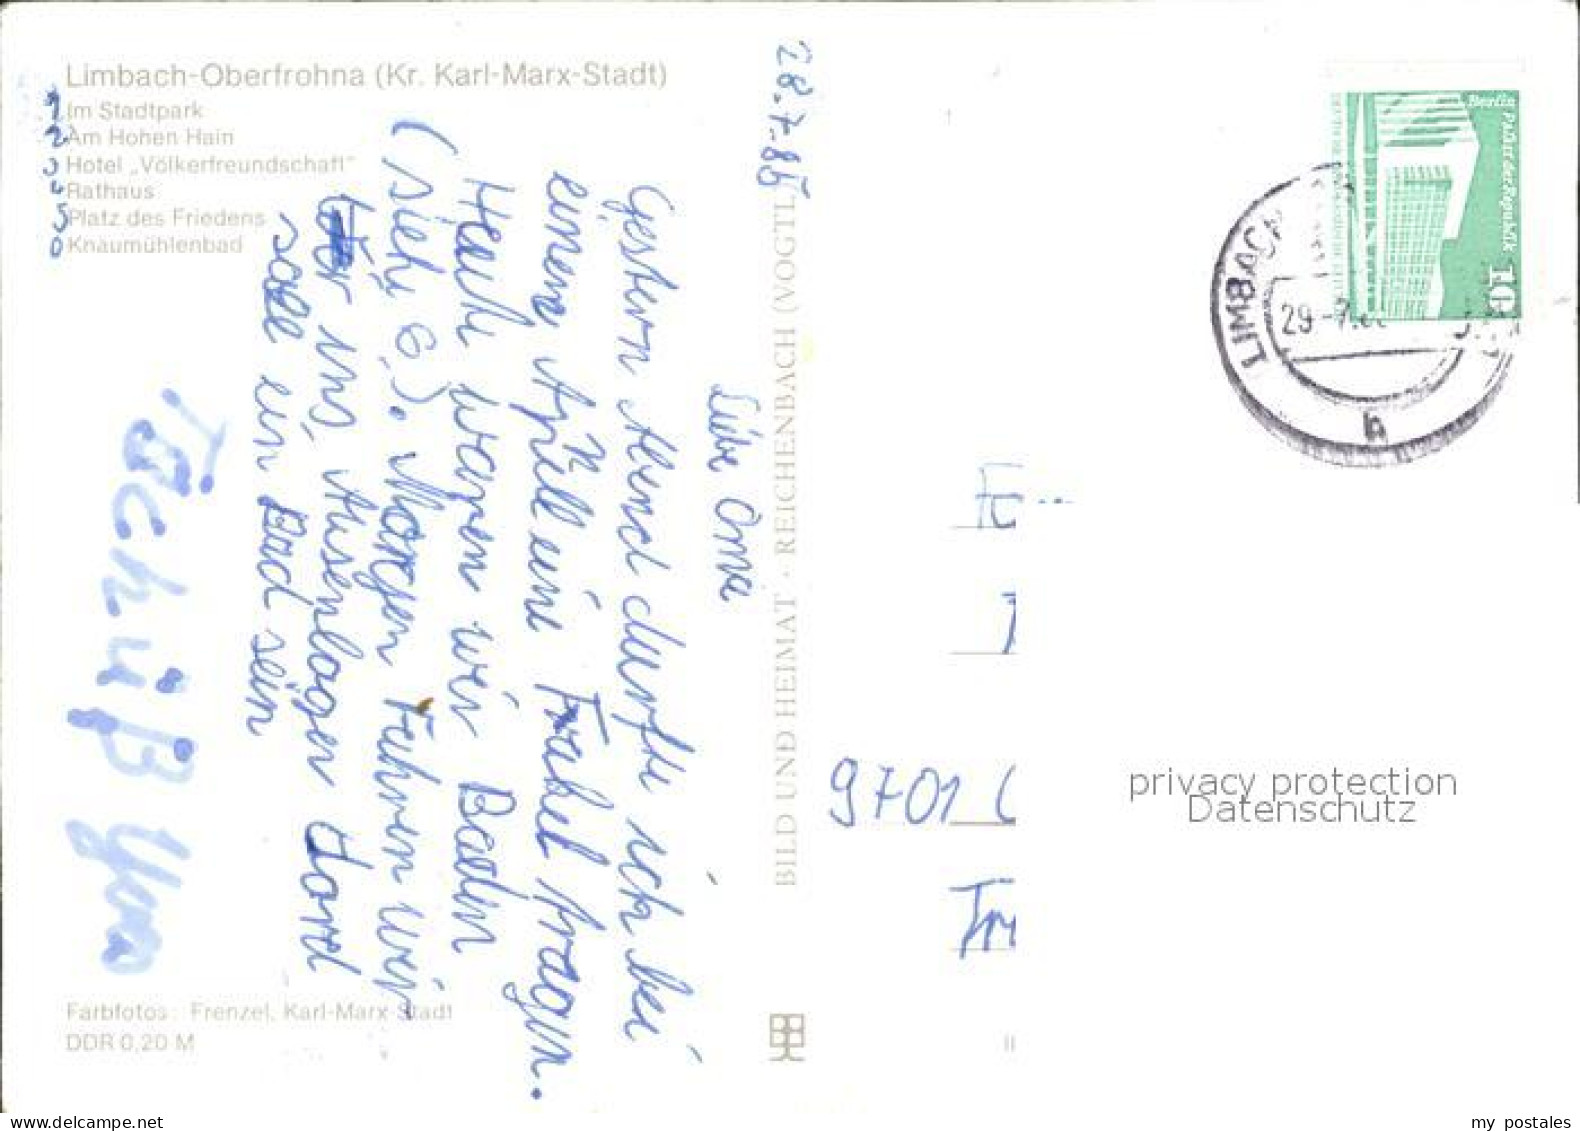 Limbach-Oberfrohna (Kr. Karl-Marx-Stadt)
1 Im Stadtpark
2 Am Hohen Hain
3 Hotel „Völkerfreundschaft"
4 Rathaus
5 Platz des Friedens
6 Knaumühlenbad
28.7.85
Liebe Oma
Gestern Abend durfte ich bei
einem Apell eine Fackel tragen.
Heute waren wir Baden
(siehe 6). Morgen Fahren wir
ins
soll ein Bad sein
Tschüß
Farbfotos: Frenzel, Karl-Marx-Stadt
DDR 0,20 M
BILD UND HEIMAT · REICHENBACH (VOGTL
Berlin Palast der Republik
10
LIMBACH
29.-7.
b
9701
privacy protection
Datenschutz
my postales